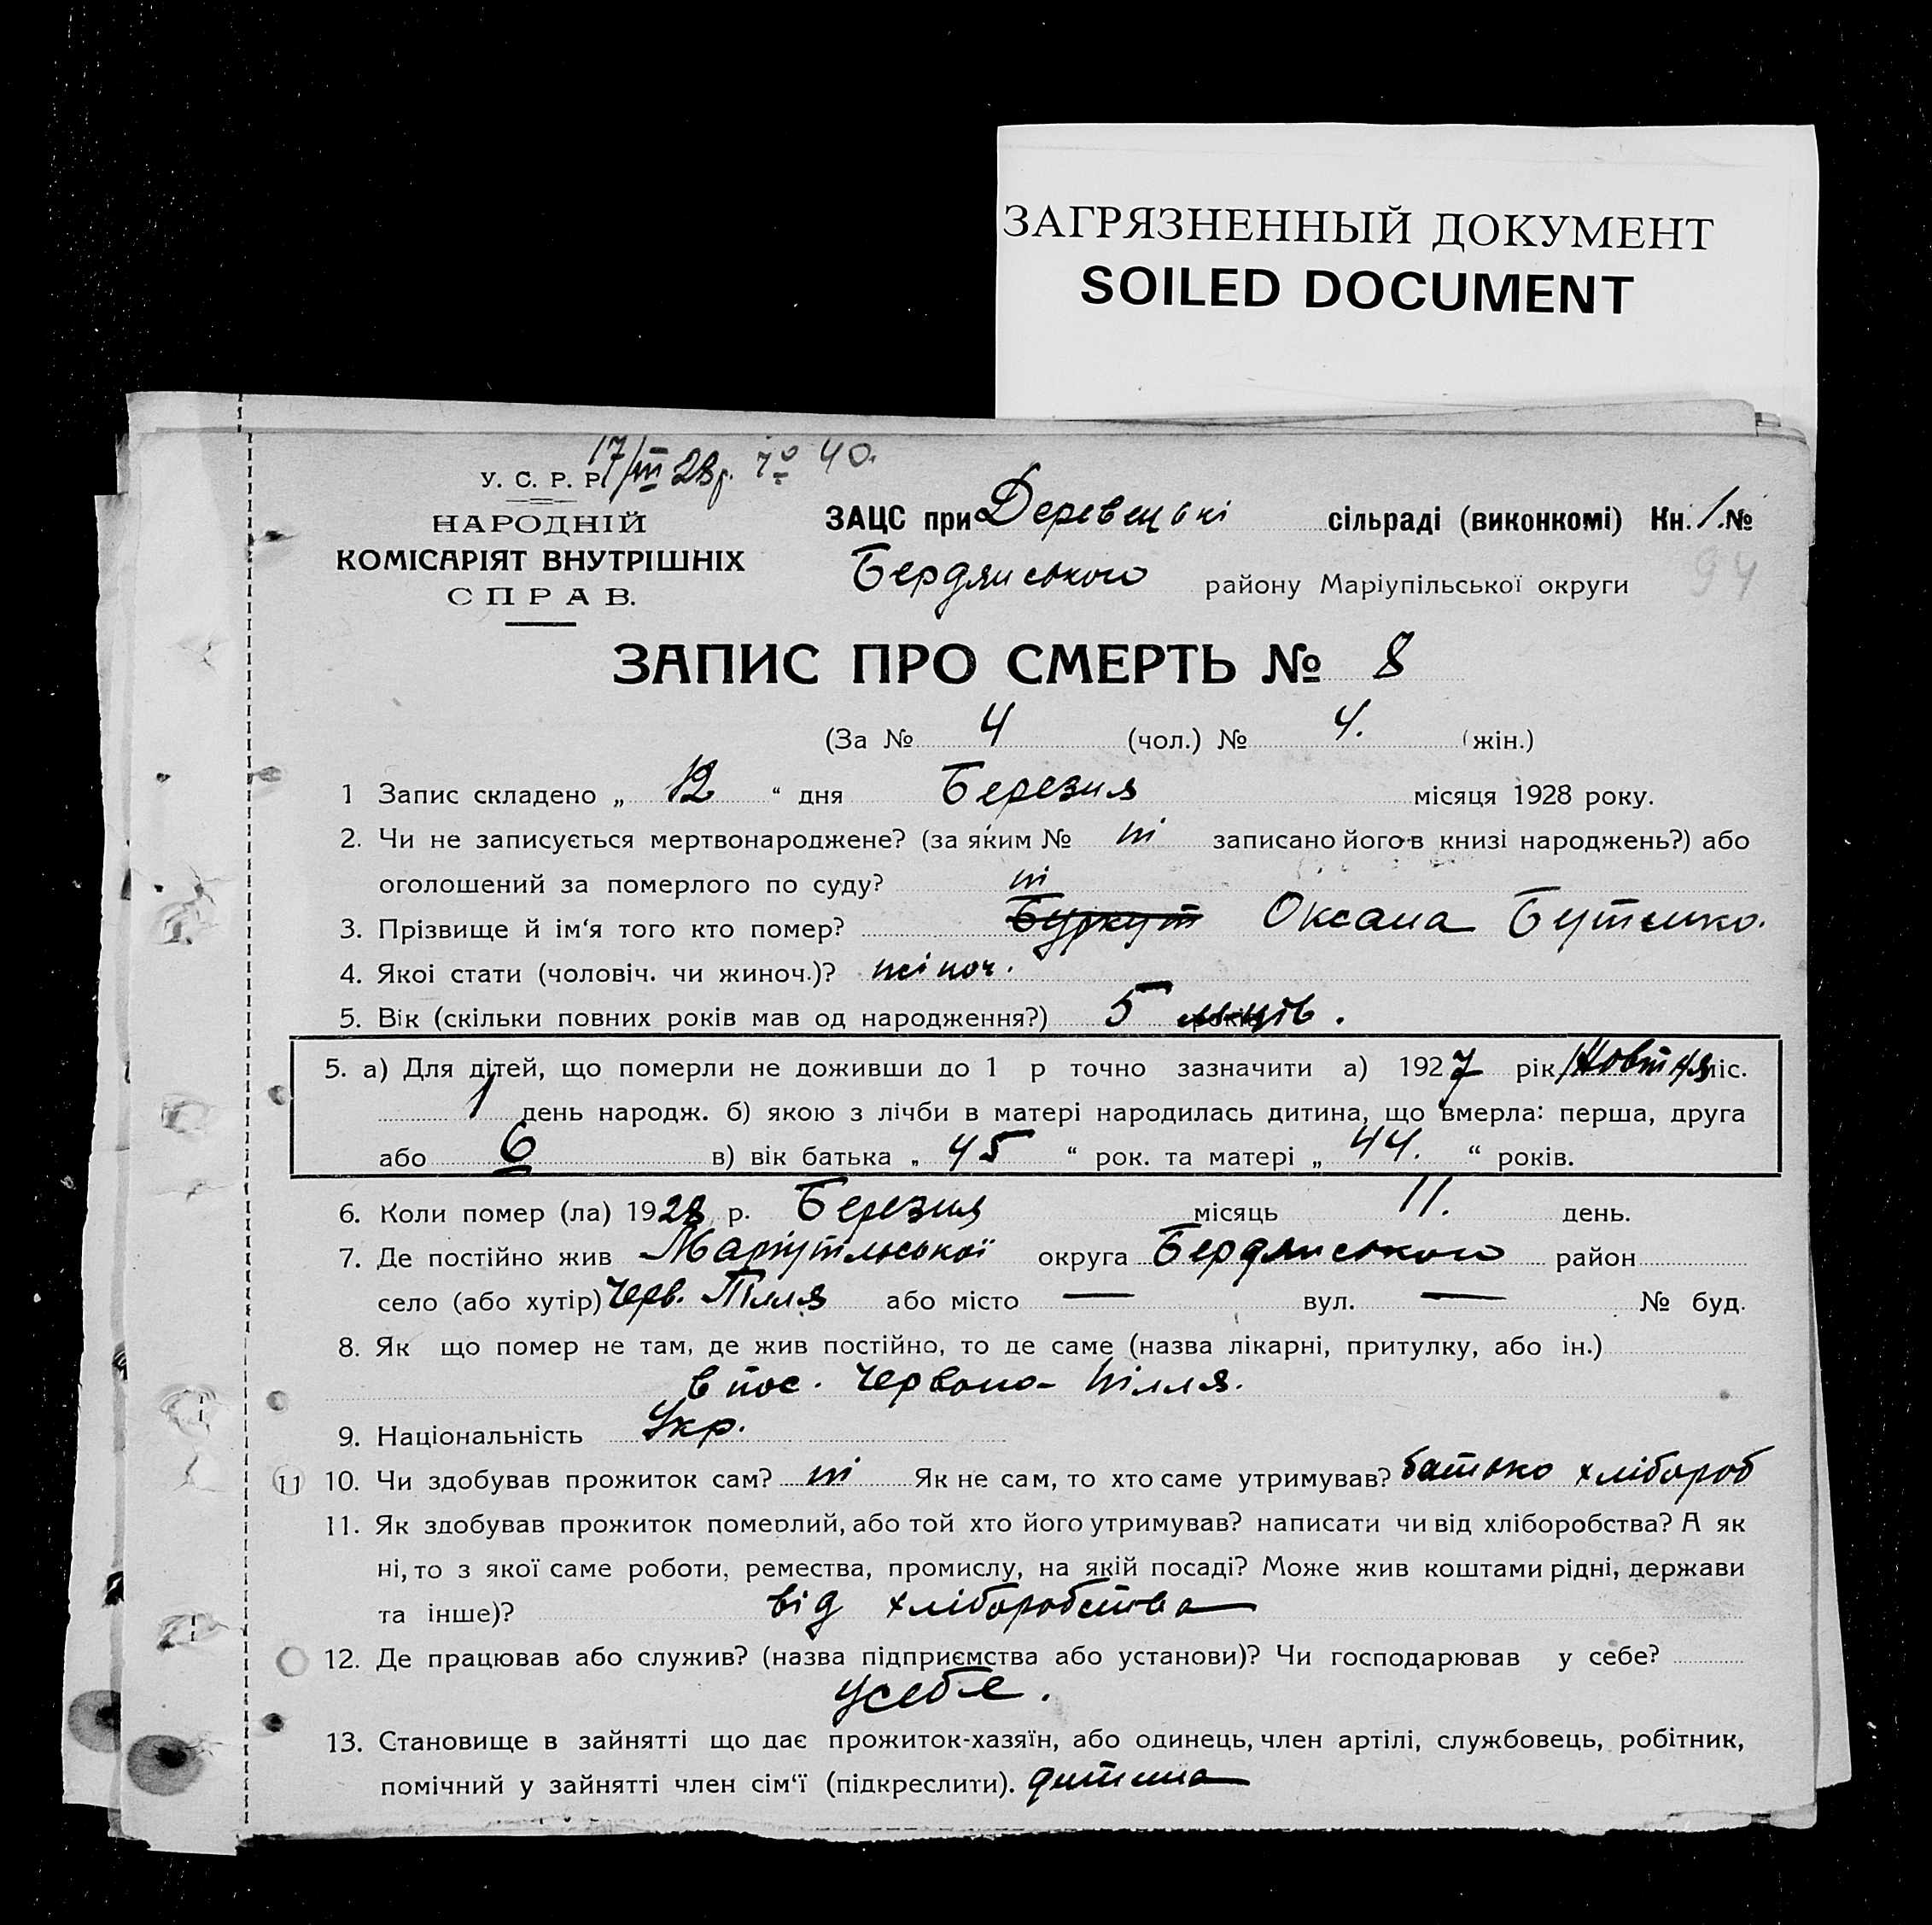 ЗАГРЯЗНЕННЫЙ ДОКУМЕНТ
SOILED DOCUMENT
17/III 28р. 40.
У. С. Р. Р.
НАРОДНІЙ
КОМІСАРІЯТ ВНУТРІШНІХ
СПРАВ.
ЗАЦС при Деревецькі сільраді (виконкомі) Кн. 1. №
Бердянського району Маріупільської округи
94
ЗАПИС ПРО СМЕРТЬ № 8
(За № 4 (чол.) № 4. (жін.)
1 Запис складено „ 12 “ дня Березня місяця 1928 року.
2. Чи не записується мертвонароджене? (за яким № ні записано його в книзі народжень?) або
оголошений за померлого по суду? ні
3. Прізвище й ім‘я того кто помер? Буркут Оксана Бутенко.
4. Якоі стати (чоловіч. чи жиноч.)? жіноч.
5. Вік (скільки повних років мав од народження?) 5 м-ців.
5. а) Для дітей, що померли не доживши до 1 р точно зазначити а) 1927 рік Жовтня міс.
1 день народж. б) якою з лічби в матері народилась дитина, що вмерла: перша, друга
або 6 в) вік батька „ 45 “ рок. та матері „ 44. “ років.
6. Коли помер (ла) 1928 р. Березня місяць 11. день.
7. Де постійно жив Маріупільської округа Бердянського район
село (або хутір) Черв. Пілля або місто — вул. — № буд.
8. Як що помер не там, де жив постійно, то де саме (назва лікарні, притулку, або ін.)
в пос. Червоно-Пілля.
9. Національність Укр.
11 10. Чи здобував прожиток сам? ні Як не сам, то хто саме утримував? батько хлібороб
11. Як здобував прожиток померлий, або той хто його утримував? написати чи від хліборобства? А як
ні, то з якої саме роботи, ремества, промислу, на якій посаді? Може жив коштами рідні, держави
та інше)? від хліборобства
12. Де працював або служив? (назва підприємства або установи)? Чи господарював у себе?
усебе.
13. Становище в зайнятті що дає прожиток-хазяїн, або одинець, член артілі, службовець, робітник,
помічний у зайнятті член сім‘ї (підкреслити). дитина